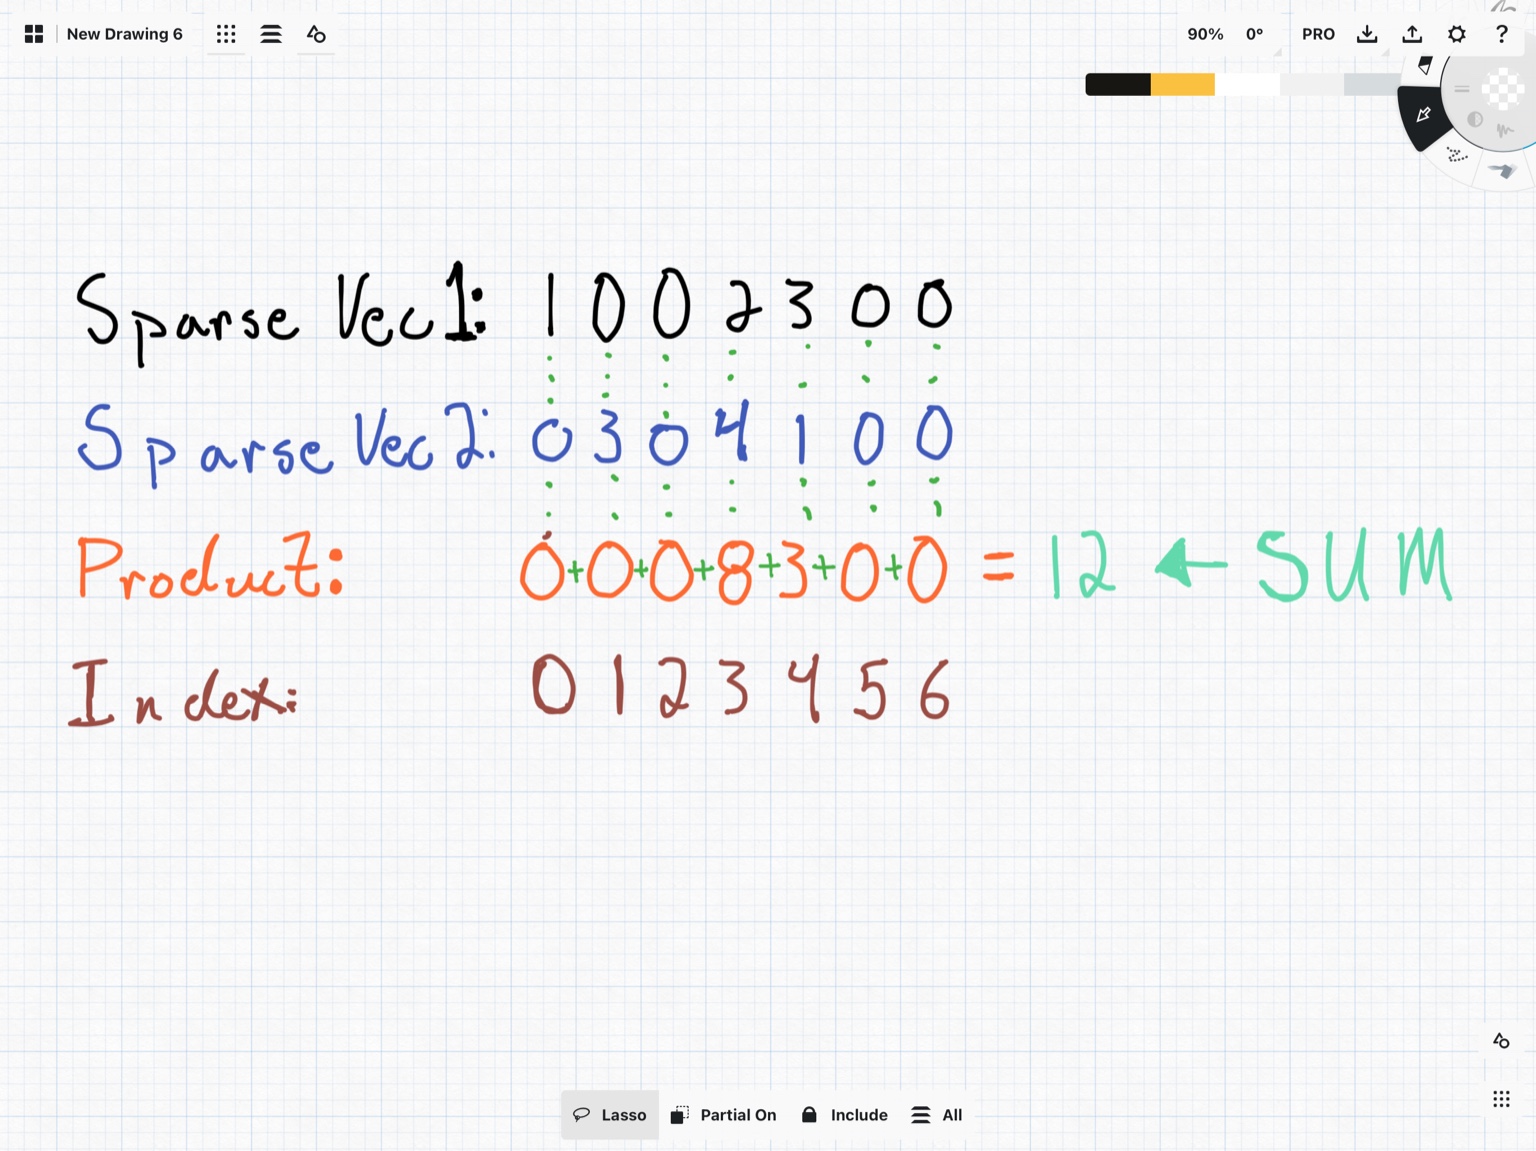 New Drawing 6
90% 0° PRO ?
Sparse Vec1: 1 0 0 2 3 0 0
Sparse Vec2: 0 3 0 4 1 0 0
Product: 0+0+0+8+3+0+0 = 12 ← SUM
Index: 0 1 2 3 4 5 6
Lasso Partial On Include All